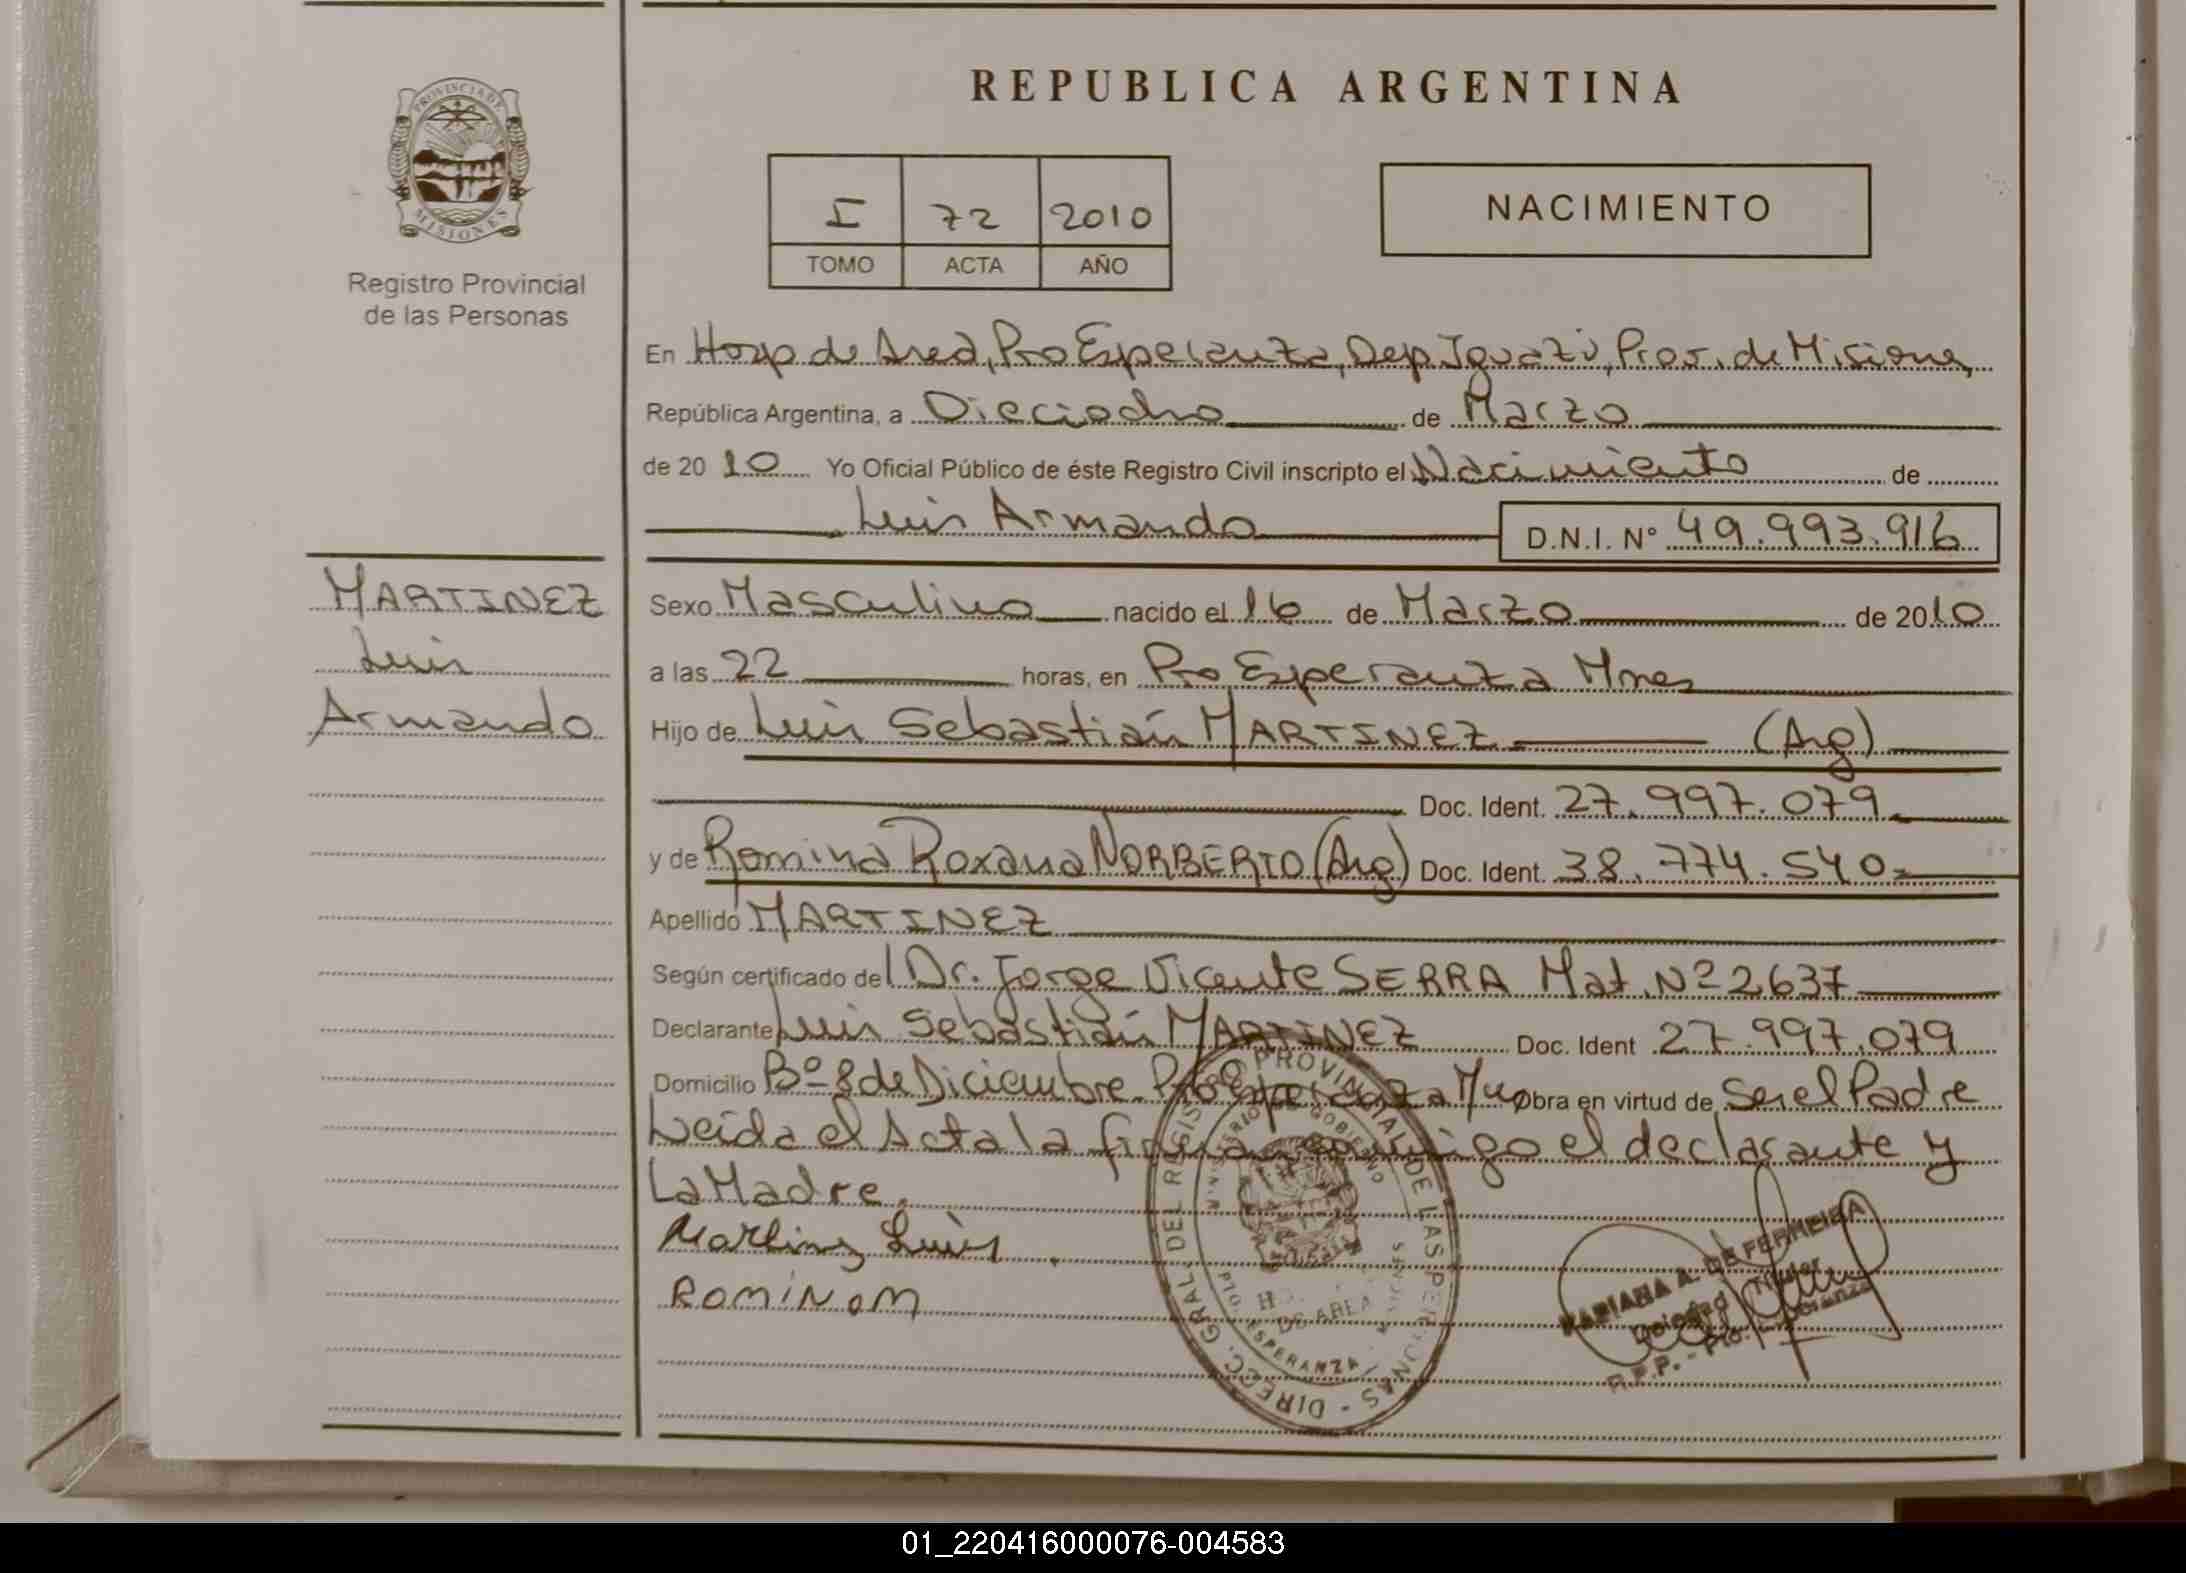 REPUBLICA ARGENTINA
PROVINCIA DE MISIONES
Registro Provincial
de las Personas
I 72 2010
TOMO ACTA AÑO
NACIMIENTO
En Hosp de Area, Pto Esperanza, Dep Iguazú, Prov. de Misiones,
República Argentina, a Dieciocho de Marzo
de 2010 Yo Oficial Público de éste Registro Civil inscripto el Nacimiento de
Luis Armando D.N.I. Nº 49.993.916
MARTINEZ
Luis
Armando
Sexo Masculino nacido el 16 de Marzo de 2010
a las 22 horas, en Pto Esperanza Mnes
Hijo de Luis Sebastián MARTINEZ (Arg)
Doc. Ident. 27.997.079
y de Romina Roxana NORBERTO (Arg) Doc. Ident. 38.774.540
Apellido MARTINEZ
Según certificado del Dr. Jorge Vicente SERRA Mat. Nº 2637
Declarante Luis Sebastián MARTINEZ Doc. Ident 27.997.079
Domicilio Bº 8 de Diciembre Pto Esperanza Obra en virtud de Ser el Padre
Leída el Acta la firman conmigo el declarante y
La Madre.
Martinez Luis
ROMINA
DIREC. GRAL. DEL REGISTRO PROVINCIAL DE LAS PERSONAS
MINISTERIO DE GOBIERNO
DE AREA
PTO. ESPERANZA - MISIONES
MARIANA A. DE FERREIRA
Titular
R.P.P. - Pto. Esperanza
01_220416000076-004583